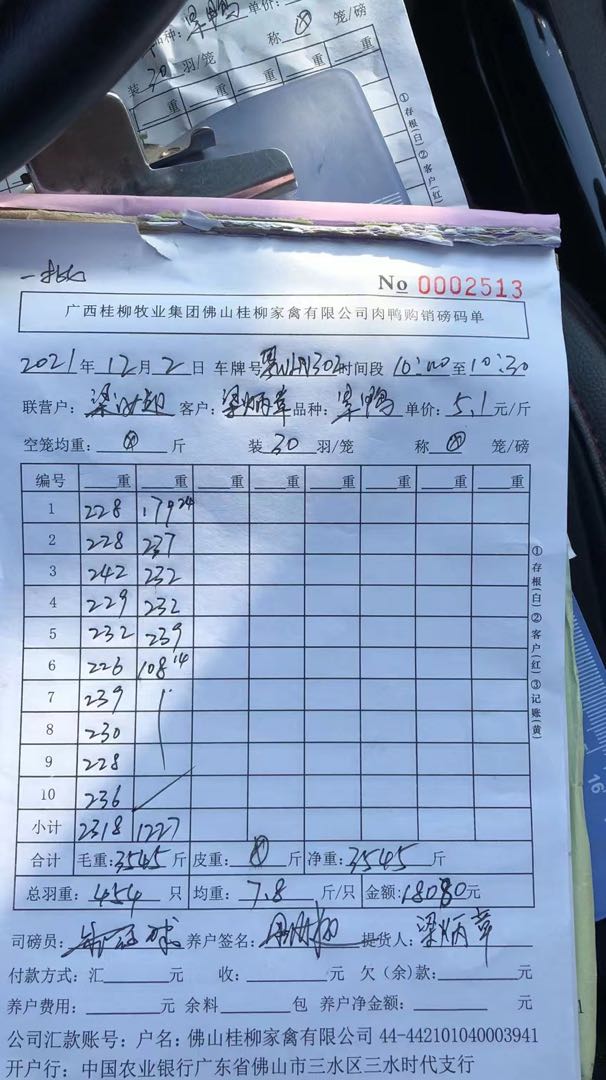 单价:
称 笼/磅
装30羽/笼
重 重 重 重 重 重
①存根(白)②客户(红)
No 0002513
广西桂柳牧业集团佛山桂柳家禽有限公司肉鸭购销磅码单
2021年12月2日 车牌号 时间段10:00至10:30
联营户: 客户:梁炳章 品种: 单价:5.1元/斤
空笼均重: 斤 装30羽/笼 称 笼/磅
编号 重 重 重 重 重 重 重 重
1 228 179 24
2 228 237
3 242 232
4 229 232
5 232 239
6 226 108 14
7 239
8 230
9 228
10 236
小计 2318 1227
合计 毛重:3545斤 皮重: 斤 净重:3545斤
总羽重:454只 均重:7.8斤/只 金额:18080元
①存根(白)②客户(红)③记账(黄)
司磅员: 养户签名: 提货人:梁炳章
付款方式:汇 元 收: 元 欠(余)款: 元
养户费用: 元 余料 包 养户净金额: 元
公司汇款账号:户名:佛山桂柳家禽有限公司 44-442101040003941
开户行:中国农业银行广东省佛山市三水区三水时代支行
16
1